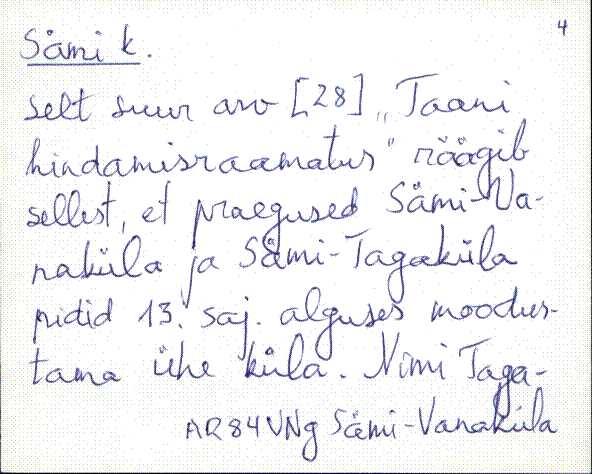 4
Sämi k.
selt suur arv [28] „Taani
hindamisraamatus" räägib
sellest, et praegused Sämi-Va-
naküla ja Sämi-Tagaküla
pidid 13. saj. alguses moodus-
tama ühe küla. Nimi Taga-
AR84VNg Sämi-Vanaküla